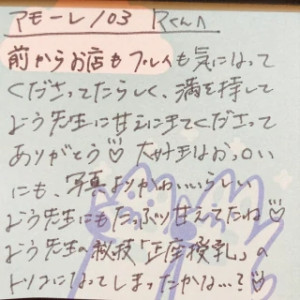 アモーレ103 Rくんへ
前からお店もプレイも気になって
くださってたらしく、満を持して
よう先生に甘えにきてくださって
ありがとう♡ 大好きなおっぱい
にも、写真よりかわいいらしい
よう先生にもたっぷり甘えてたね♡
よう先生の秘技「正座授乳」の
トリコになってしまったかな…?♡